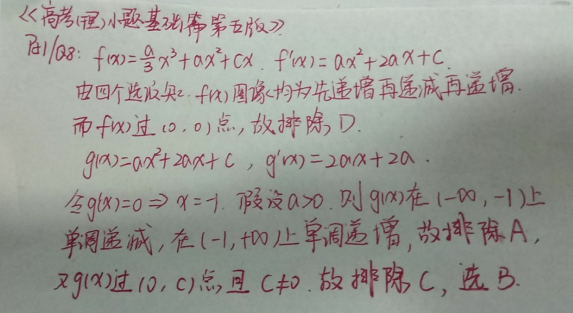 《高考(理)小题基础篇第五版》
P21/Q8: f(x)=a/3x³+ax²+cx. f'(x)=ax²+2ax+c.
由四个选项知: f(x)图像均为先递增再递减再递增.
而f(x)过(0,0)点,故排除D.
g(x)=ax²+2ax+c, g'(x)=2ax+2a.
令g'(x)=0⇒x=-1. 假设a>0. 则g(x)在(-∞,-1)上
单调递减,在(-1,+∞)上单调递增,故排除A,
又g(x)过(0,c)点,且c≠0.故排除C,选B.